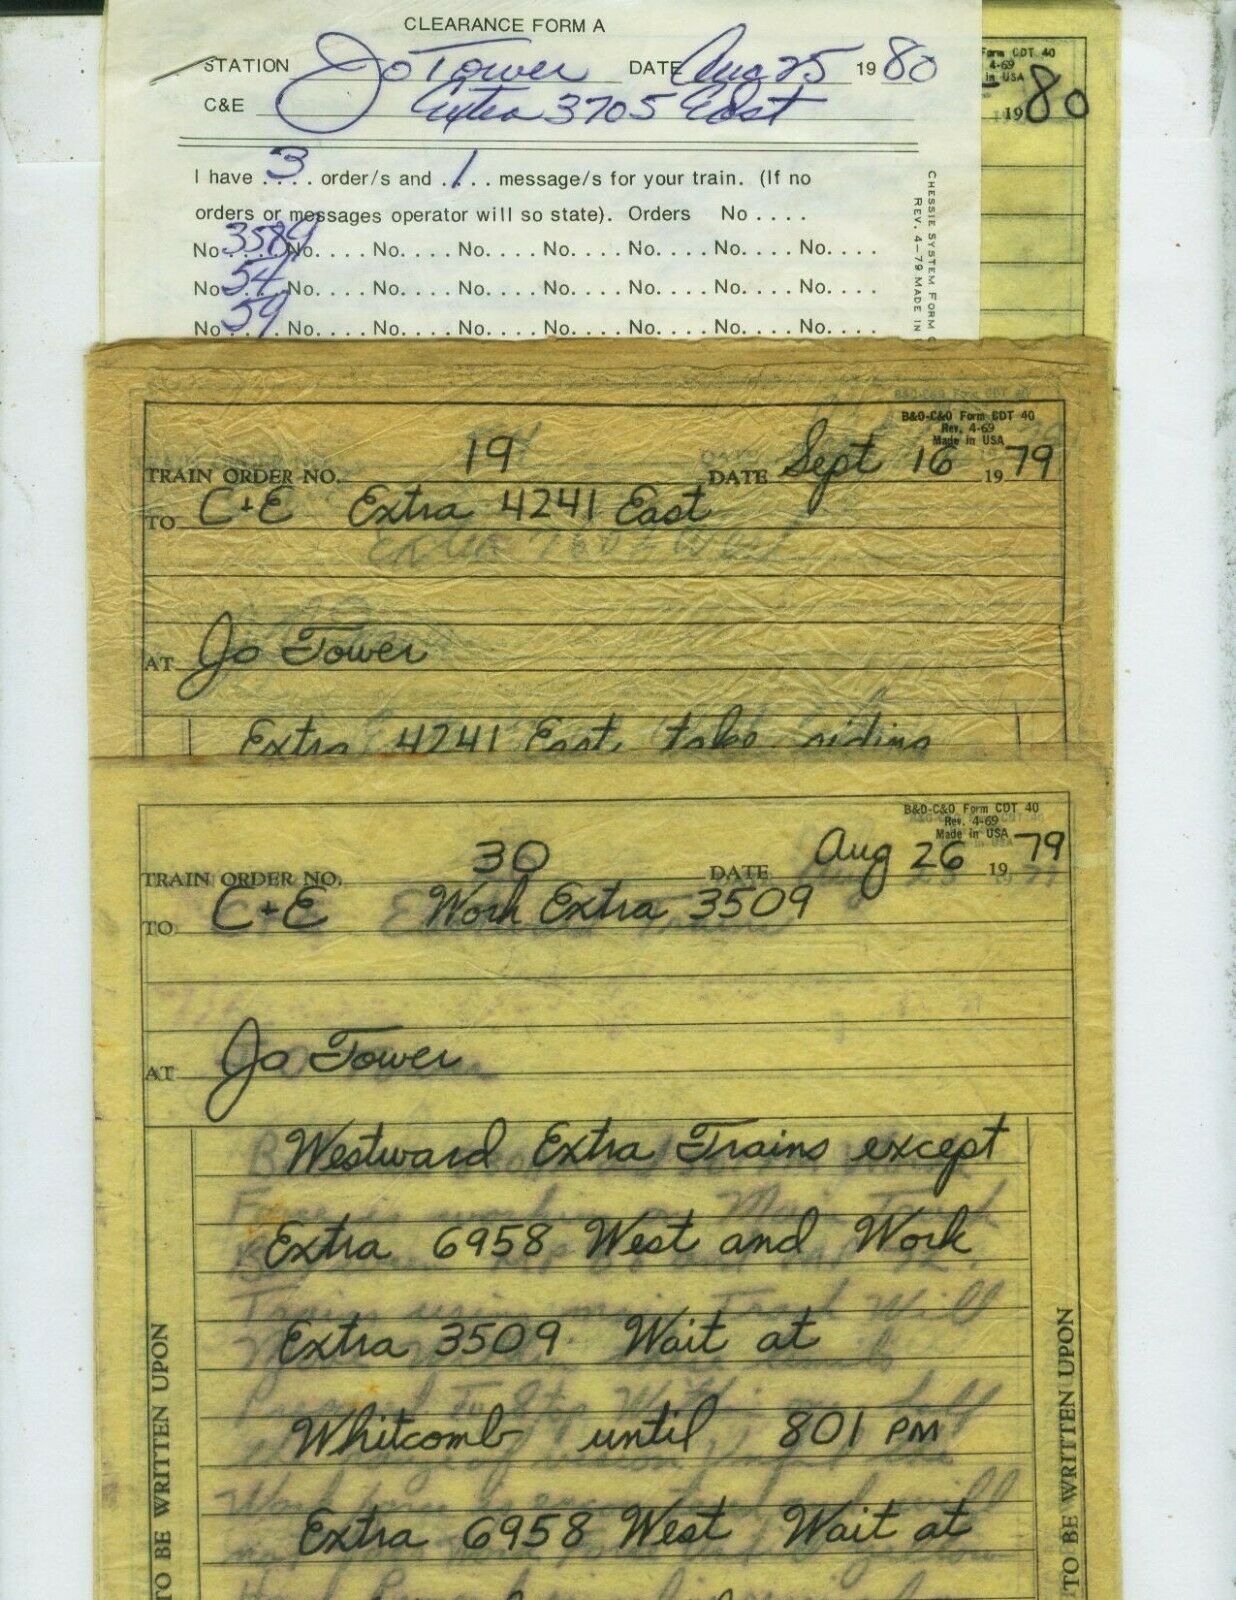 CLEARANCE FORM A
STATION Jo Tower DATE Aug 25 1980
C&E Extra 3705 East
I have .3.. order/s and .1.. message/s for your train. (If no
orders or messages operator will so state). Orders No ....
No 3589 No.... No.... No.... No.... No.... No.... No....
No 54 No.... No.... No.... No.... No.... No.... No....
No 59 No.... No.... No.... No.... No.... No.... No....
CHESSIE SYSTEM FORM
REV. 4-79 MADE IN
Form CDT 40
4-69
in USA
1980
B&O-C&O Form CDT 40
Rev. 4-69
Made in USA
TRAIN ORDER NO. 19 DATE Sept 16 1979
TO C+E Extra 4241 East
AT Jo Tower
Extra 4241 East take siding
B&O-C&O Form CDT 40
Rev. 4-69
Made in USA
TRAIN ORDER NO. 30 DATE Aug 26 1979
TO C+E Work Extra 3509
AT Jo Tower
Westward Extra Trains except
Extra 6958 West and Work
Extra 3509 Wait at
Whitcomb until 801 PM
Extra 6958 West Wait at
TO BE WRITTEN UPON
TO BE WRITTEN UPON